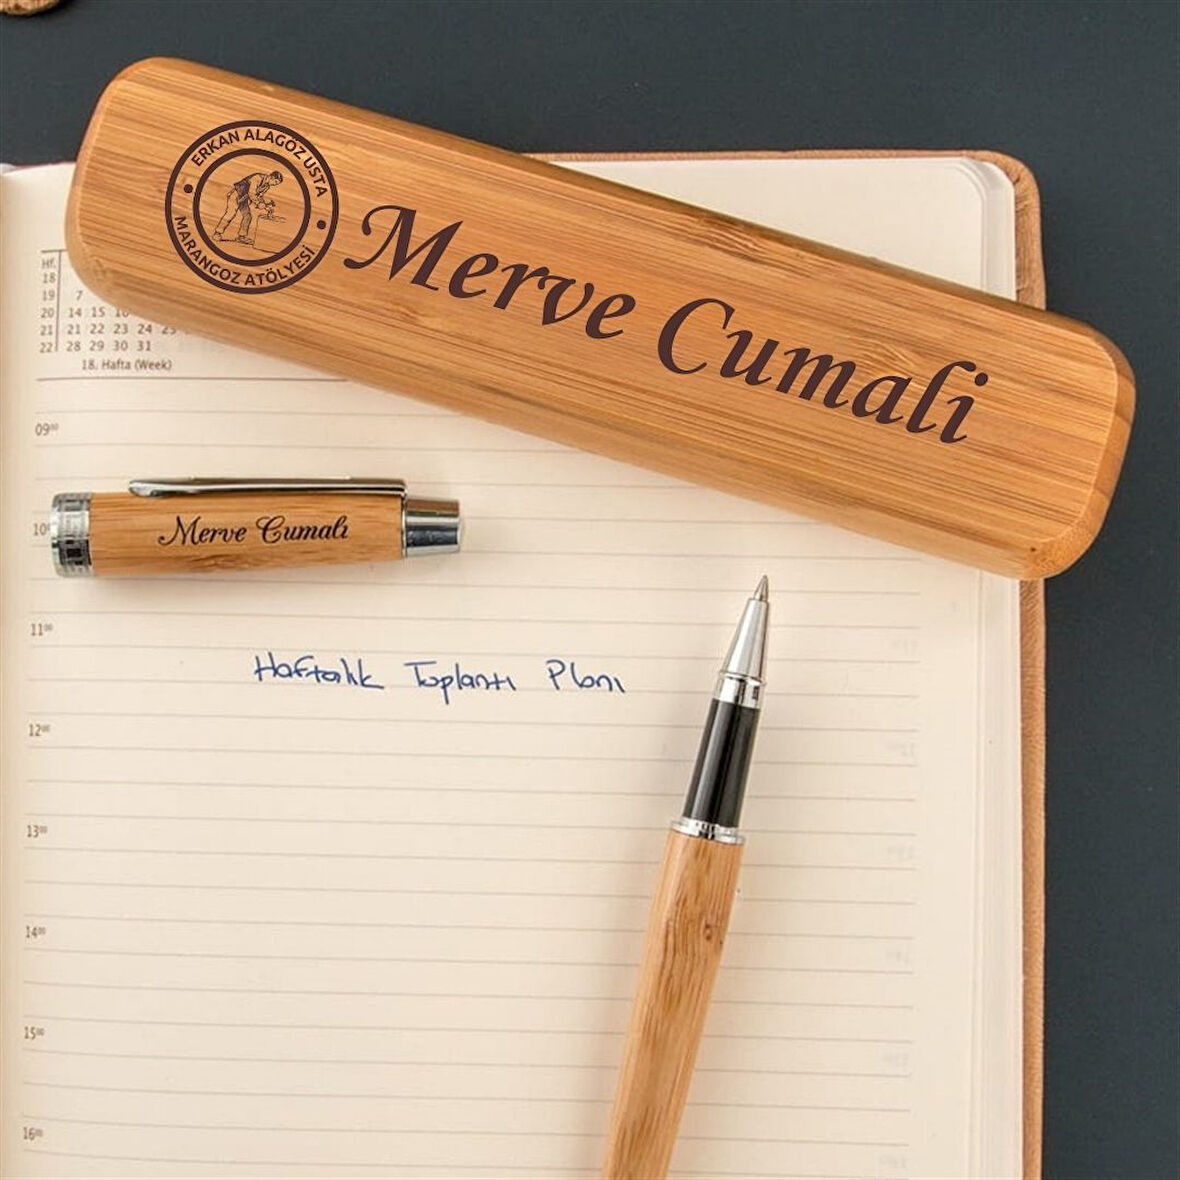 ERKAN ALAGÖZ USTA
MARANGOZ ATÖLYESİ
Merve Cumali
Hf.
18
19 7
20 14 15 16
21 21 22 23 24 25
22 28 29 30 31
18. Hafta (Week)
09⁰⁰
10
Merve Cumalı
11⁰⁰
Haftalık Toplantı Planı
12⁰⁰
13⁰⁰
14⁰⁰
15⁰⁰
16⁰⁰